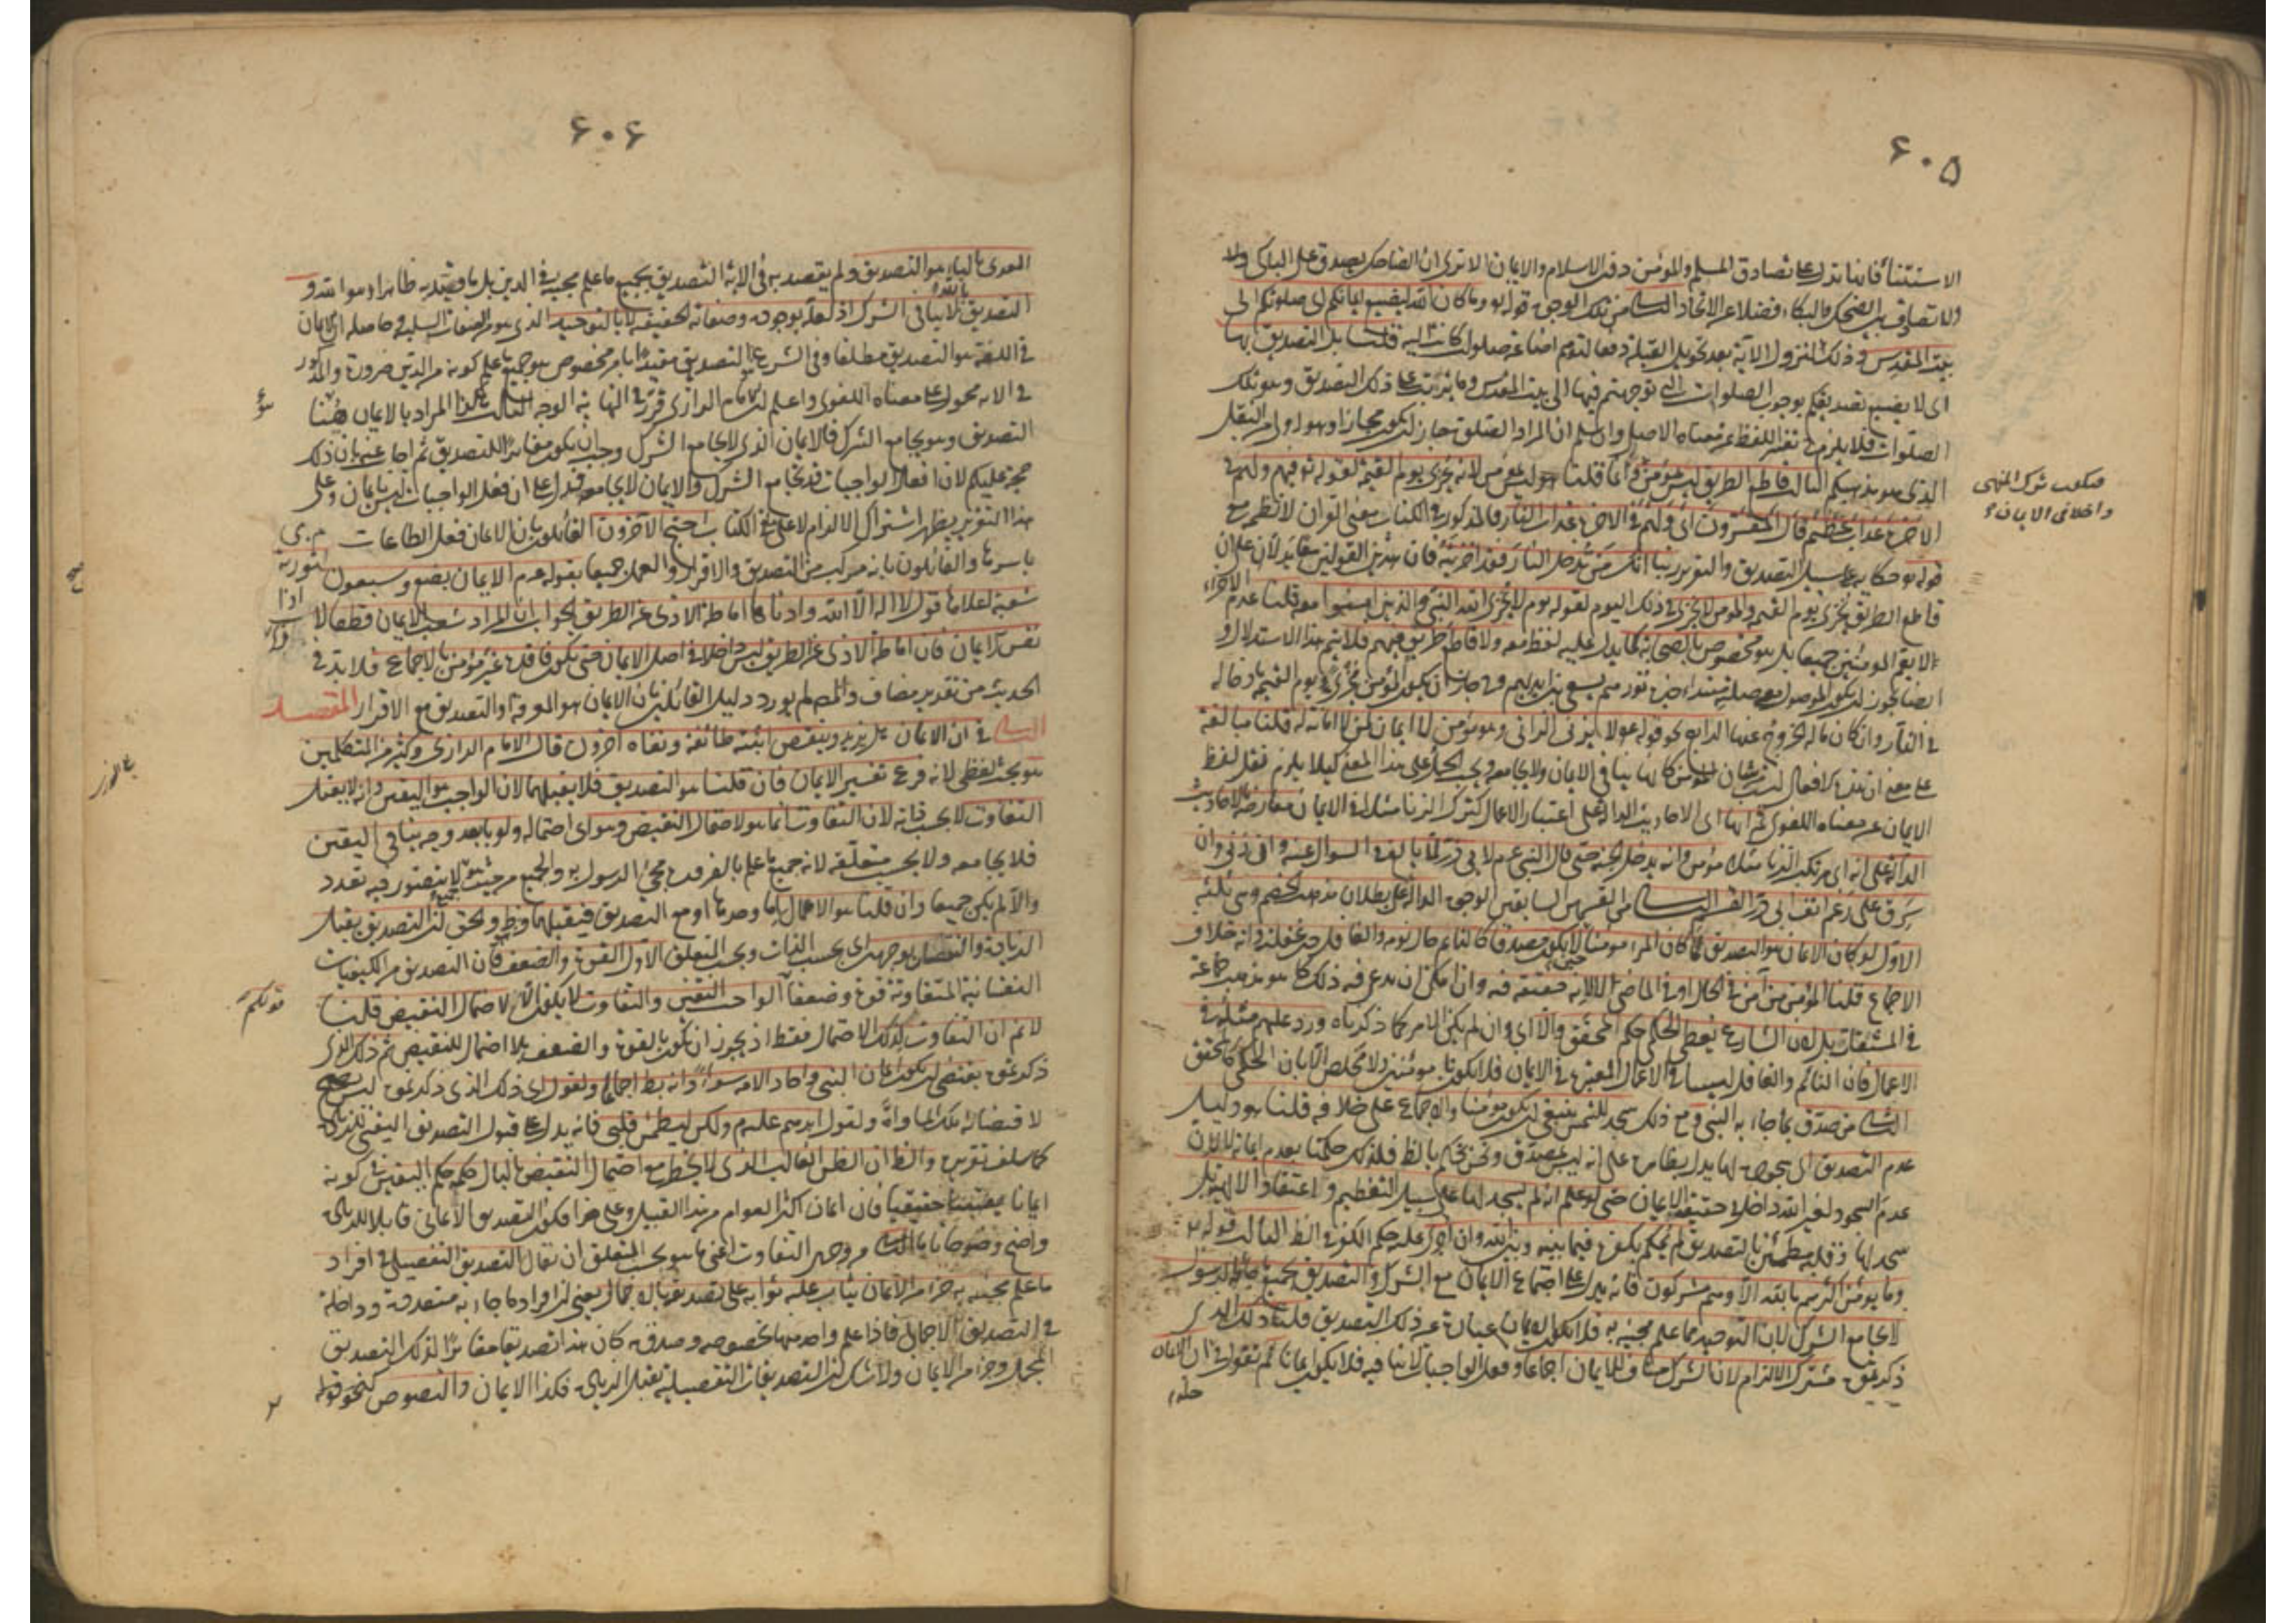 ۶۰۵
الاستثناء فانما تدل على تصادق المسلم والمؤمن دون الاسلام والايمان الا ترى ان الضاحك يصدق على الباكى ولا
ولا تصادق بين الضحك والبكاء فضلا عن الاتحاد الثانى من تلك الوجوه قوله تع وما كان الله ليضيع ايمانكم اى صلوتكم الى
بيت المقدس وذلك لنزول الآية بعد تحويل القبلة دفعا لتوهم اضاعة صلوات كانت اليه قلنا بل التصديق بها
اى لا يضيع تصديقكم بوجوب الصلوات التى توجهتم فيها الى بيت المقدس وما يترتب على ذلك التصديق وهو تلك
الصلوات فلا يلزم تغير اللفظ عن معناه الاصلى وان سلم ان المراد الصلوة جاز ان يكون مجازا وهو اولى من النقل
الذى هو مذهبكم الثالث قاطع الطريق ليس بمؤمن وانما قلنا هو ليس بمؤمن لانه يخزى يوم القيمة لقوله تع فيهم ولهم فى
الآخرة عذاب عظيم قال المفسرون اى ولهم فى الآخرة عذاب النار فالمذكور فى الكتاب معنى القرآن لا نظمه مع
قوله تع حكاية على سبيل التصديق والتقرير ربنا انك من تدخل النار فقد اخزيته فان هذين القولين معا يدلان على ان
قاطع الطريق يخزى يوم القيمة والمؤمن لا يخزى فى ذلك اليوم لقوله يوم لا يخزى الله النبى والذين آمنوا معه قلنا عدم الاخزاء
لا يعم المؤمنين جميعا بل هو مخصوص بالصحابة كما يدل عليه لفظ معه ولا قاطع طريق فيهم فلا يتم هذا الاستدلال و
ايضا يجوز ان يكون الموصول مع صلته مبتداء خبره نورهم يسعى بين ايديهم وح جاز ان يكون المؤمن يخزى فى يوم القيمة بادخاله
فى النار وان كان مآله الخروج عنها الرابع نحو قوله ع لا يزنى الزانى وهو مؤمن لا ايمان لمن لا امانة له قلنا مبالغة
على معنى ان هذه الافعال ليست من شان المؤمن كانها ينافى الايمان ولا يجامعه ويجب الحمل على هذا المعنى كيلا يلزم نقل لفظ
الايمان عن معناه اللغوى ثم انها اى الاحاديث الدالة على اعتبار الاعمال كترك الزنا مثلا فى الايمان معارضة بالاحاديث
الدالة على انه اى مرتكب الزنا مثلا مؤمن وانه يدخل الجنة حتى قال النبى عم لابى ذر لما بالغ فى السؤال عنه وان زنى وان
سرق على رغم انف ابى ذر القسم الثانى من القسمين السابقين الوجوه الدالة على بطلان مذهب الخصم وهى ثلثة
الاول لو كان الايمان هو التصديق لما كان المرء مؤمنا حين لا يكون مصدقا كالنائم حال نومه والغافل حين غفلته وانه خلاف
الاجماع قلنا المؤمن من آمن فى الحال او فى الماضى لا لانه حقيقة فيه وان امكن ان يدعى فيه ذلك كما هو مذهب جماعة
فى المشتقات بل لان الشارع يعطى الحكمى حكم المحقق والا اى وان لم يكن الامر كما ذكرناه ورد عليهم مثله فى
الاعمال فان النائم والغافل ليسا فى الاعمال المعتبرة فى الايمان فلا يكونان مؤمنين ولا مخلص الا بان الحكمى كالمحقق
الثانى من صدق بما جاء به النبى ومع ذلك سجد للشمس ينبغى ان يكون مؤمنا والاجماع على خلافه قلنا هو دليل
عدم التصديق اى سجوده لها يدل بظاهره على انه ليس بمصدق ونحن نحكم بالظ فلذلك حكمنا بعدم ايمانه لا لان
عدم السجود لغير الله داخل فى حقيقة الايمان حتى لو علم انه لم يسجد لها على سبيل التعظيم واعتقاد الالهية بل
سجد لها وقلبه مطمئن بالتصديق لم يحكم بكفره فيما بينه وبين الله وان اجرى عليه حكم الكفر فى الظ الثالث قوله تع
وما يؤمن اكثرهم بالله الا وهم مشركون فانه يدل على اجتماع الايمان مع الشرك والتصديق بجميع ما جاء به الرسول
لا يجامع الشرك لان التوحيد مما علم مجيئه به فلا يكون الايمان عبارة عن ذلك التصديق قلنا ذلك الذى
ذكرتموه مشترك الالزام لان الشرك مناف للايمان اجماعا وفعل الواجبات لا ينافيه فلا يكون ايمانا ثم نقول فى ان الايمان
واخلا فى الايمان
۶۰۶
المعدى بالباء هو التصديق ولم يقصد به فى الآية التصديق بجميع ما علم مجيئه فى الدين بل بما قيد به ظاهرا وهو الله و
التصديق بالله لا ينافى الشرك اذ لعله بوجوده وصفاته الحقيقية لا بالتوحيد الذى هو من الصفات السلبية وحاصله ان الايمان
فى اللغة هو التصديق مطلقا وفى الشرع التصديق مقيدا بامر مخصوص هو جميع ما علم كونه من الدين ضرورة والمذكور
فى الآية محمول على معناه اللغوى واعلم ان الامام الرازى قرر فى النهاية الوجه الثالث هكذا المراد بالايمان ههنا
التصديق وهو يجامع الشرك فالايمان الذى لا يجامع الشرك وجب ان يكون مغايرا للتصديق ثم اجاب عنه بان ذلك
حجة عليكم لان افعال الواجبات قد تجامع الشرك والايمان لا يجامعه فدل على ان فعل الواجبات ليس بايمان وعلى
هذا التقرير يظهر اشتراك الالزام لا على ما فى الكتاب احتج الآخرون القائلون بان الايمان فعل الطاعات
باسرها والقائلون بانه مركب من التصديق والاقرار والعمل جميعا بقوله عم الايمان بضع وسبعون
شعبة اعلاها قول لا اله الا الله وادناها اماطة الاذى عن الطريق الجواب ان المراد شعب الايمان قطعا لا
نفس الايمان فان اماطة الاذى عن الطريق ليس داخلا فى اصل الايمان حتى يكون فاقده غير مؤمن بالاجماع فلا بد فى
الحديث من تقدير مضاف والمص لم يورد دليل القائلين بان الايمان هو المعرفة او التصديق مع الاقرار المقصد
الثانى فى ان الايمان هل يزيد وينقص اثبته طائفة ونفاه آخرون قال الامام الرازى وكثير من المتكلمين
هو بحث لفظى لانه فرع تفسير الايمان فان قلنا هو التصديق فلا يقبلهما لان الواجب هو اليقين وانه لا يقبل
التفاوت لا بحسب ذاته لان التفاوت انما هو لاحتمال النقيض وهو اى احتماله ولو بابعد وجه ينافى اليقين
فلا يجامعه ولا بحسب متعلقه لانه جميع ما علم بالضرورة مجئ الرسول به والجميع من حيث هو جميع لا يتصور فيه تعدد
والا لم يكن جميعا وان قلنا هو الاعمال اما وحدها او مع التصديق فيقبلهما وهو ظ والحق ان التصديق يقبل
الزيادة والنقصان بوجهين اى بحسب الذات وبحسب المتعلق الاول القوة والضعف فان التصديق من الكيفيات
النفسانية المتفاوتة قوة وضعفا قولكم الواجب اليقين والتفاوت لا يكون الا لاحتمال النقيض قلنا
لا نم ان التفاوت لذلك الاحتمال فقط اذ يجوز ان يكون بالقوة والضعف بلا احتمال للنقيض ثم ذلك الذى
ذكرتموه يقتضى ان يكون ايمان النبى وآحاد الامة سواء وانه بط اجماعا ولقول اى ذلك الذى ذكرتموه ليس بصحيح
لاقتضائه تلك المساواة ولقول ابرهيم عليه م ولكن ليطمئن قلبى فانه يدل على قبول التصديق اليقينى للزيادة
كما سلف تقريره والظ ان الظن الغالب الذى لا يخطر معه احتمال النقيض بالبال حكمه حكم اليقين فى كونه
ايمانا حقيقيا فان ايمان اكثر العوام من هذا القبيل وعلى هذا فكون التصديق الايمانى قابلا للزيادة
واضح وضوحا تاما الثانى من وجهى التفاوت اعنى ما هو بحسب المتعلق ان يقال التصديق التفصيلى فى افراد
ما علم مجيئه به جزء من الايمان يثاب عليه ثوابه على تصديقه بالاجمال يعنى ان افراد ما جاء به متعددة وداخلة
فى التصديق الاجمالى فاذا علم واحد منها بخصوصه وصدق به كان هذا تصديقا مغايرا لذلك التصديق
المجمل وجزء من الايمان ولا شك ان التصديقات التفصيلية تقبل الزيادة فكذا الايمان والنصوص كنحو قوله
قولكم